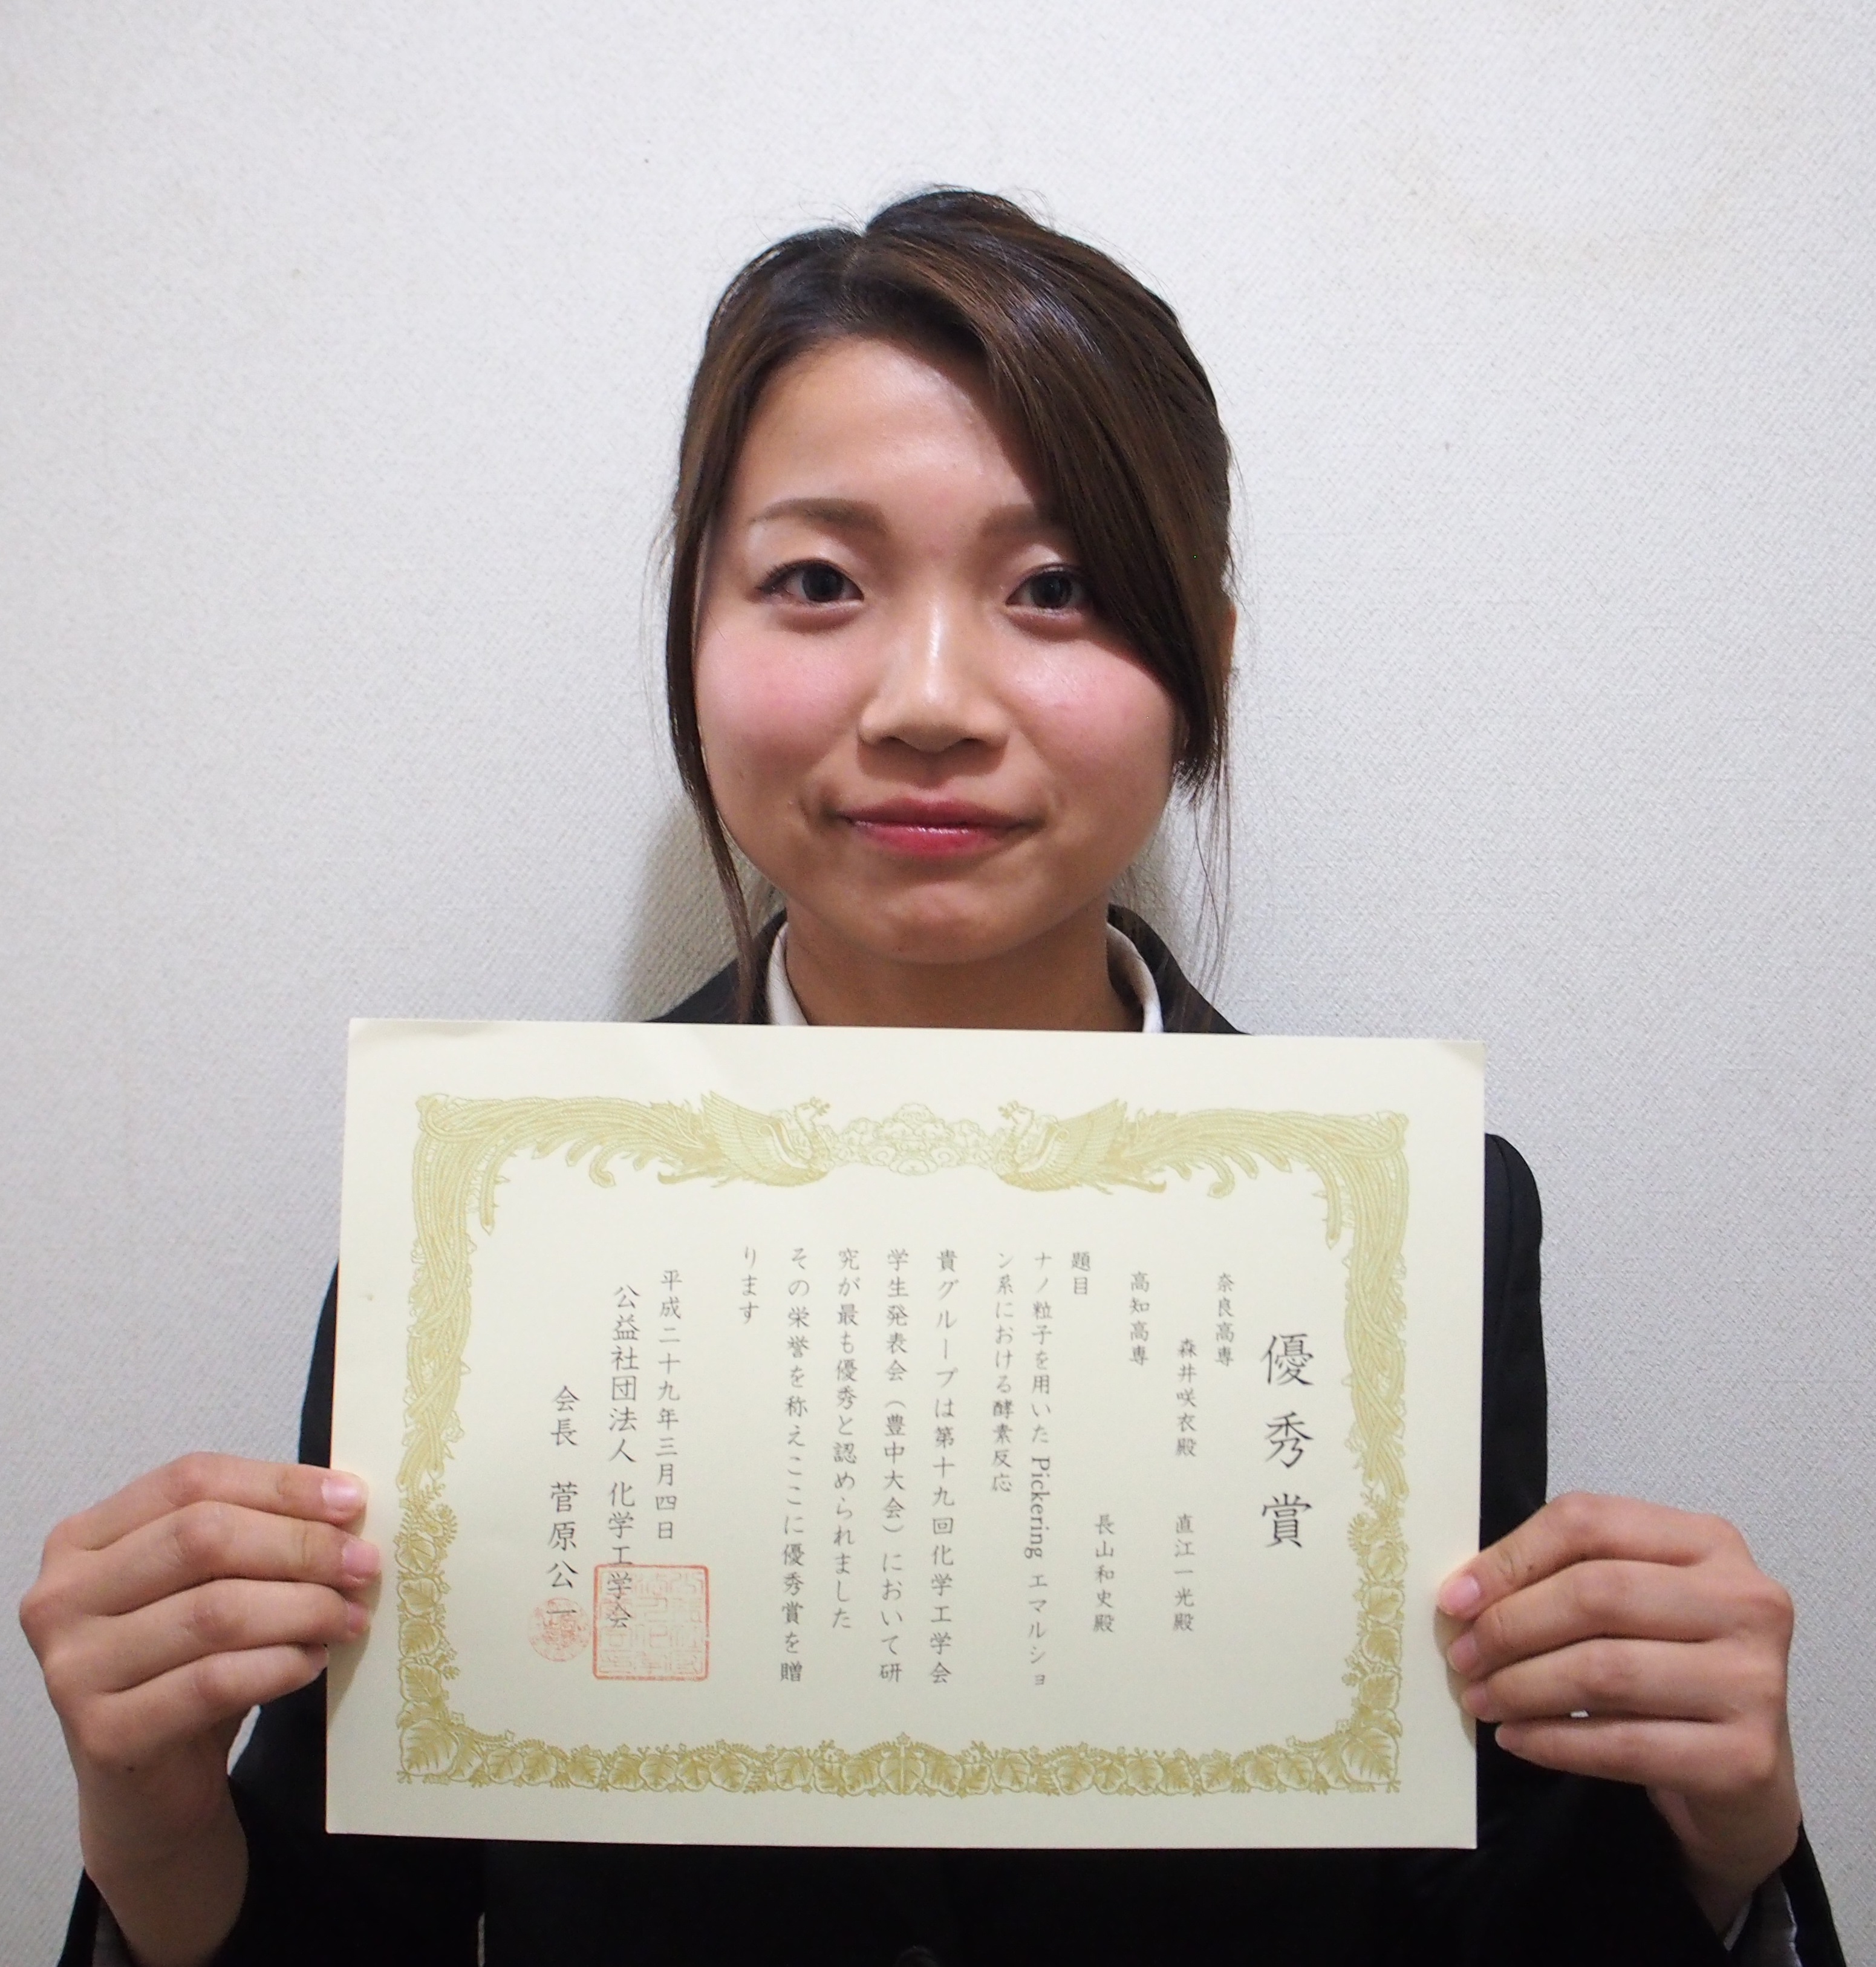 優秀賞
奈良高専
森井咲衣殿　直江一光殿
高知高専
長山和史殿
題目
ナノ粒子を用いた Pickering エマルショ
ン系における酵素反応
貴グループは第十九回化学工学会
学生発表会（豊中大会）において研
究が最も優秀と認められました
その栄誉を称えここに優秀賞を贈
ります
平成二十九年三月四日
公益社団法人 化学工学会
会長　菅原公一